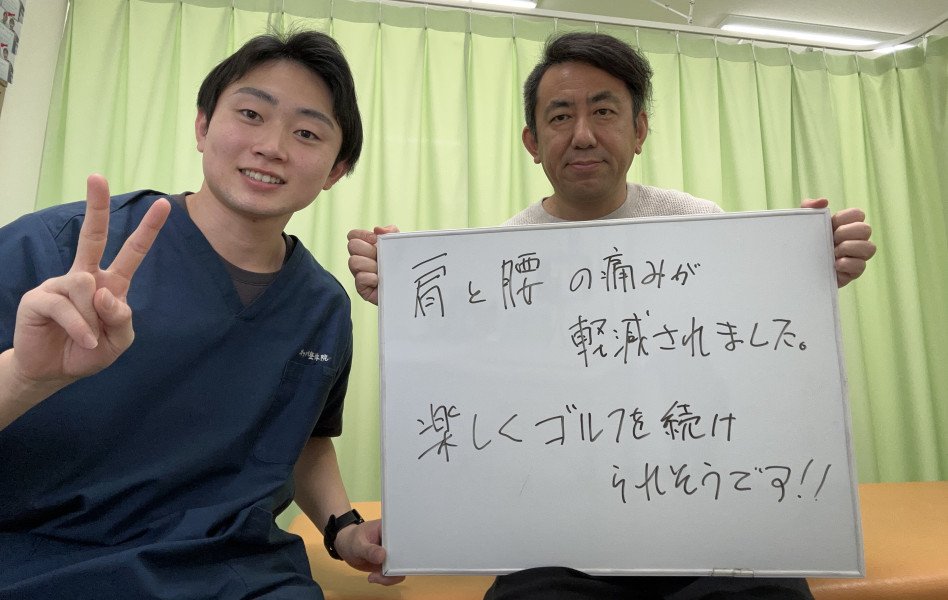 肩と腰の痛みが
軽減されました。
楽しくゴルフを続け
られそうです!!